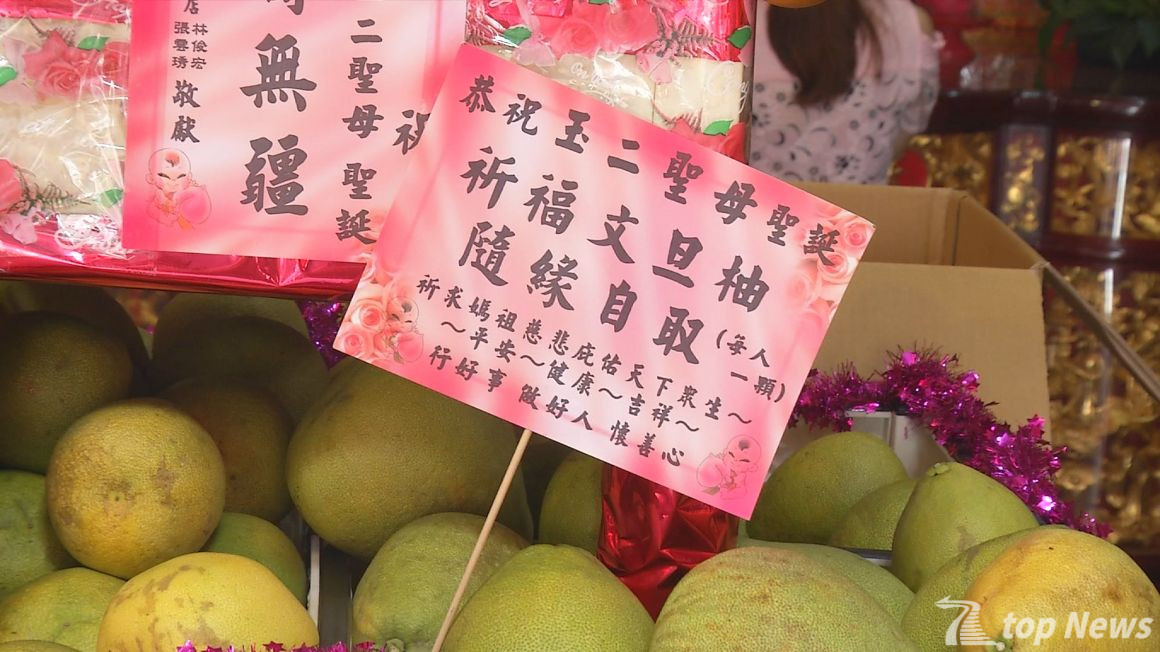 恭祝玉二聖母聖誕
祈福文旦柚
隨緣自取(每人一顆)
祈求媽祖慈悲庇佑天下眾生~
~平安~健康~吉祥~
行好事 做好人 懷善心
祝
二聖母 聖誕
無疆
店 林俊宏
張雲琇
敬獻
top News